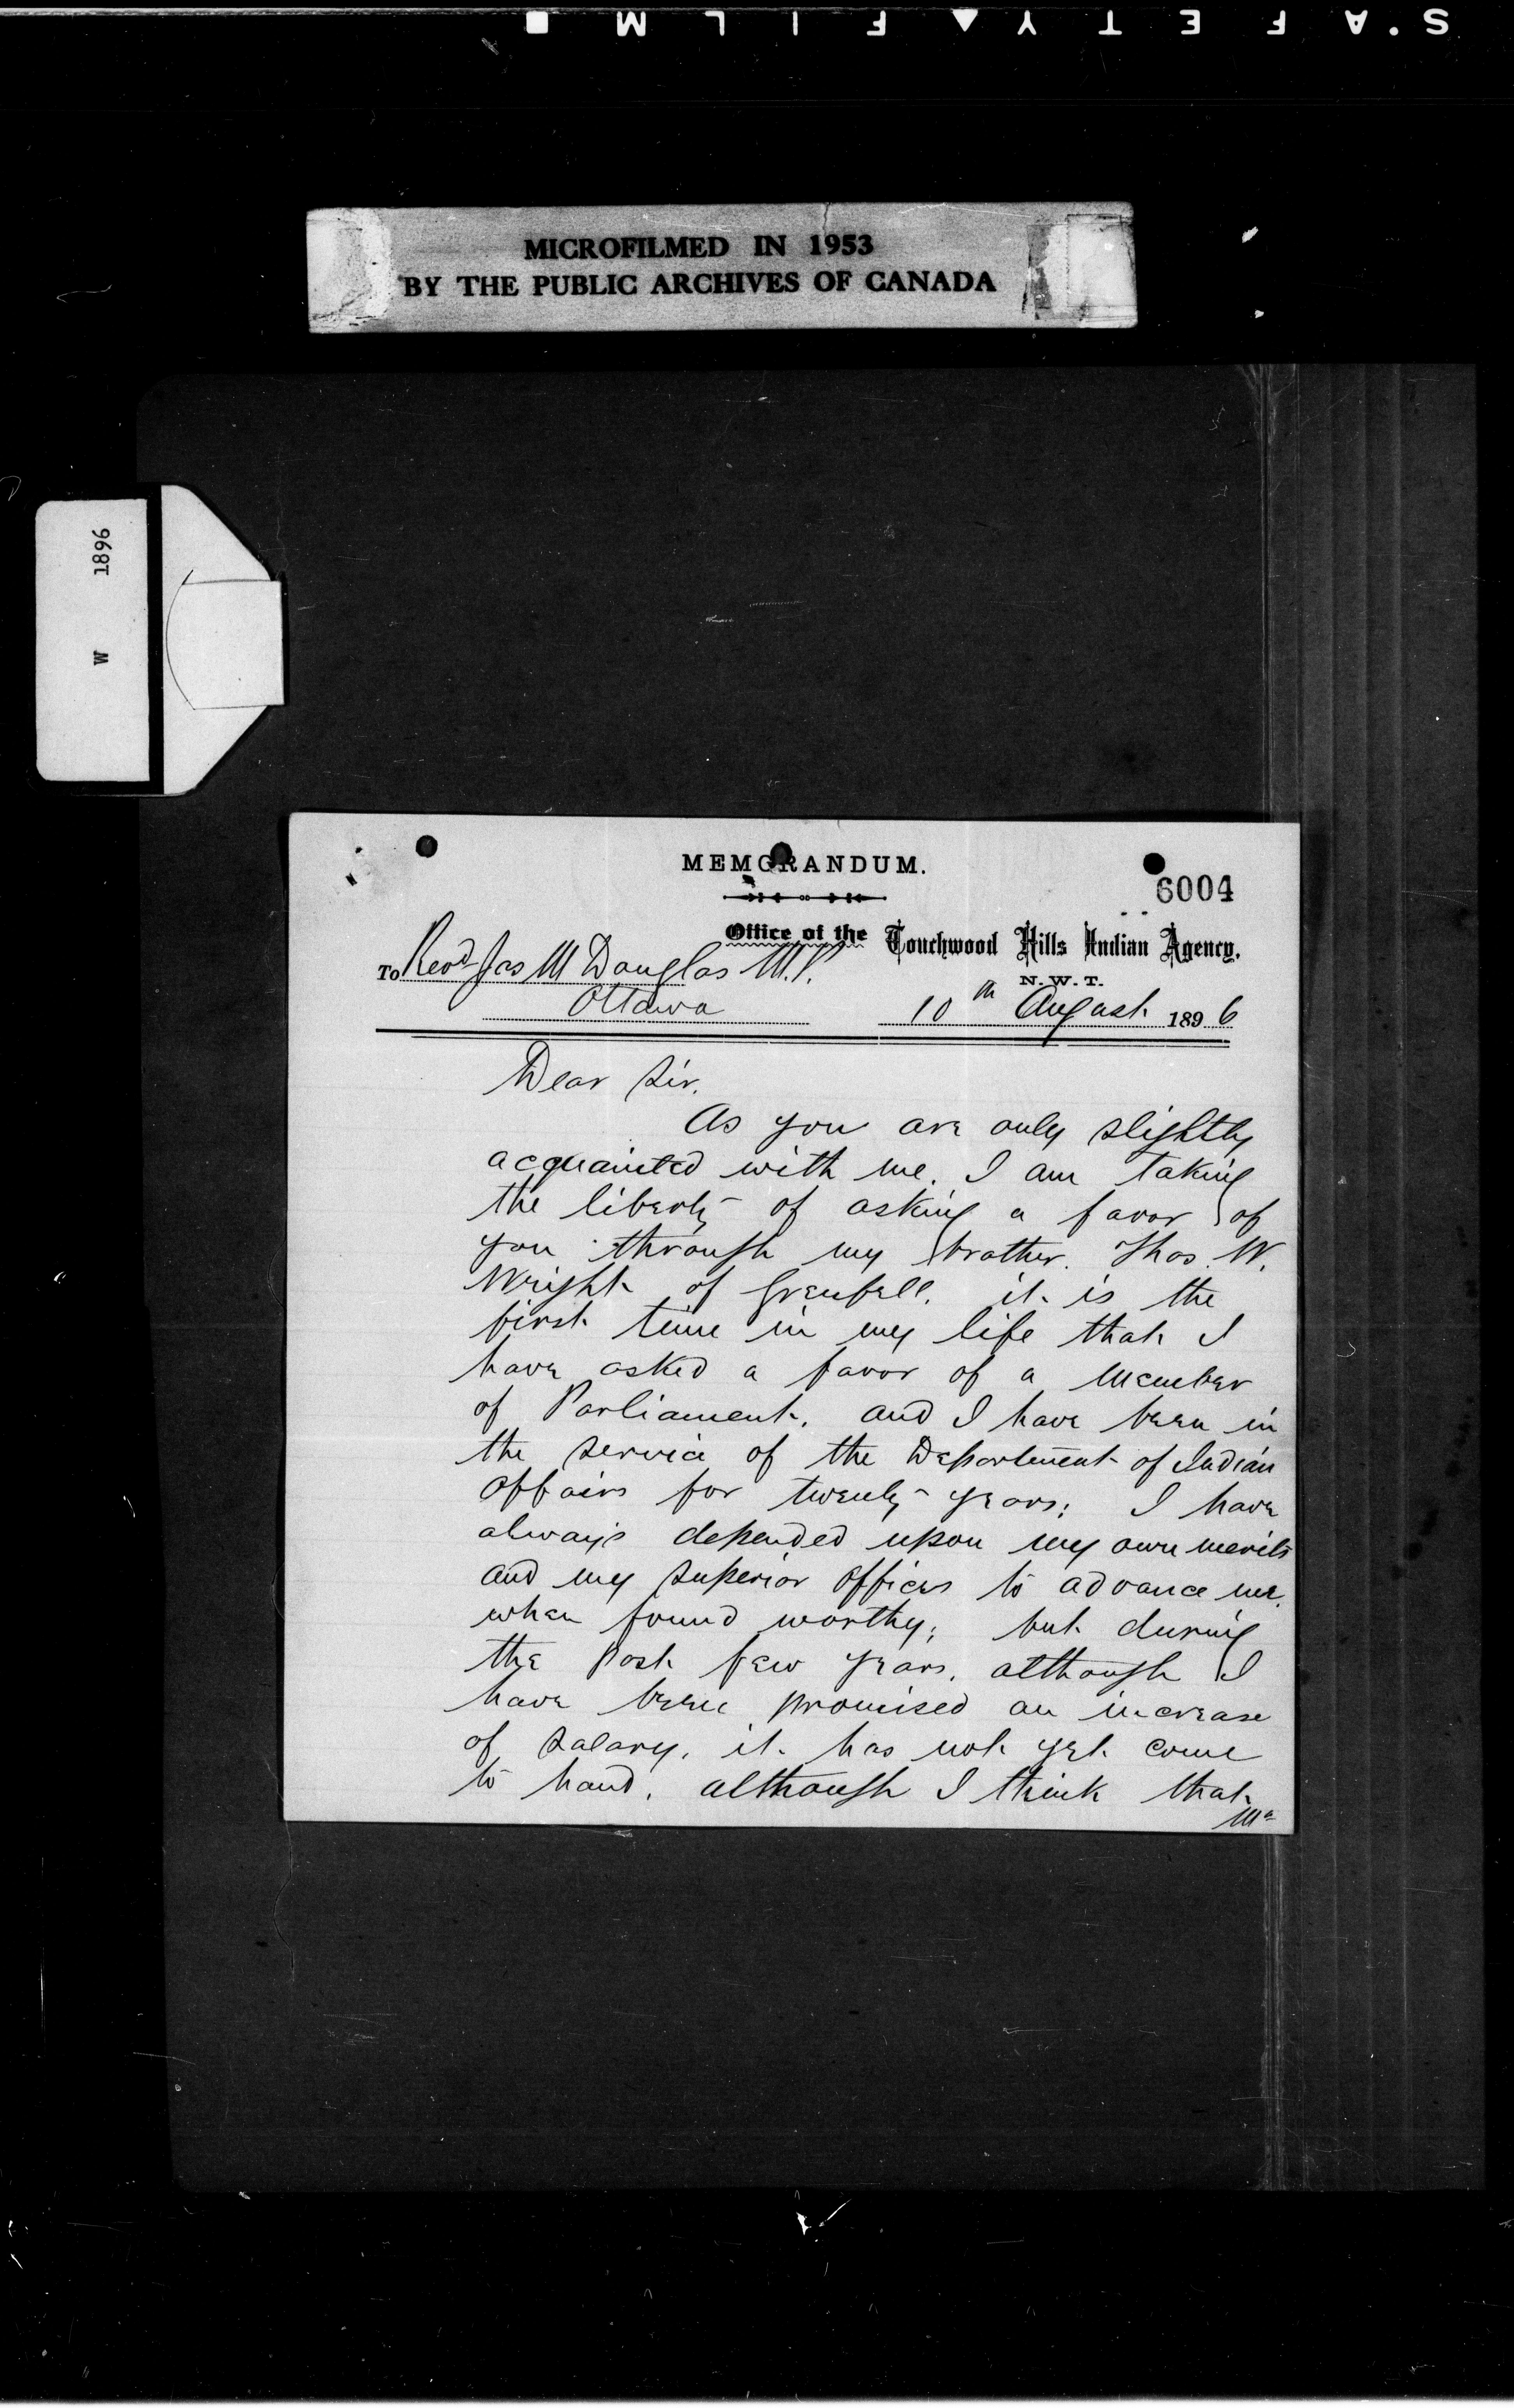 S.AFETY▲FILM■
MICROFILMED IN 1953
BY THE PUBLIC ARCHIVES OF CANADA
W 1896
MEMORANDUM.
6004
Office of the Touchwood Hills Indian Agency.
N.W.T.
To Revd Jas M Douglas M.P.
Ottawa
10th August 1896
Dear Sir.
As you are only slightly
acquainted with me. I am taking
the liberty of asking a favor of
you through my brother. Thos. W.
Wright of Grenfell. it is the
first time in my life that I
have asked a favor of a Member
of Parliament. and I have been in
the service of the Department of Indian
Affairs for twenty years; I have
always depended upon my own merits
and my superior officers to advance me.
when found worthy; but during
the past few years. although I
have been promised an increase
of salary. it has not yet come
to hand. although I think that
Mr